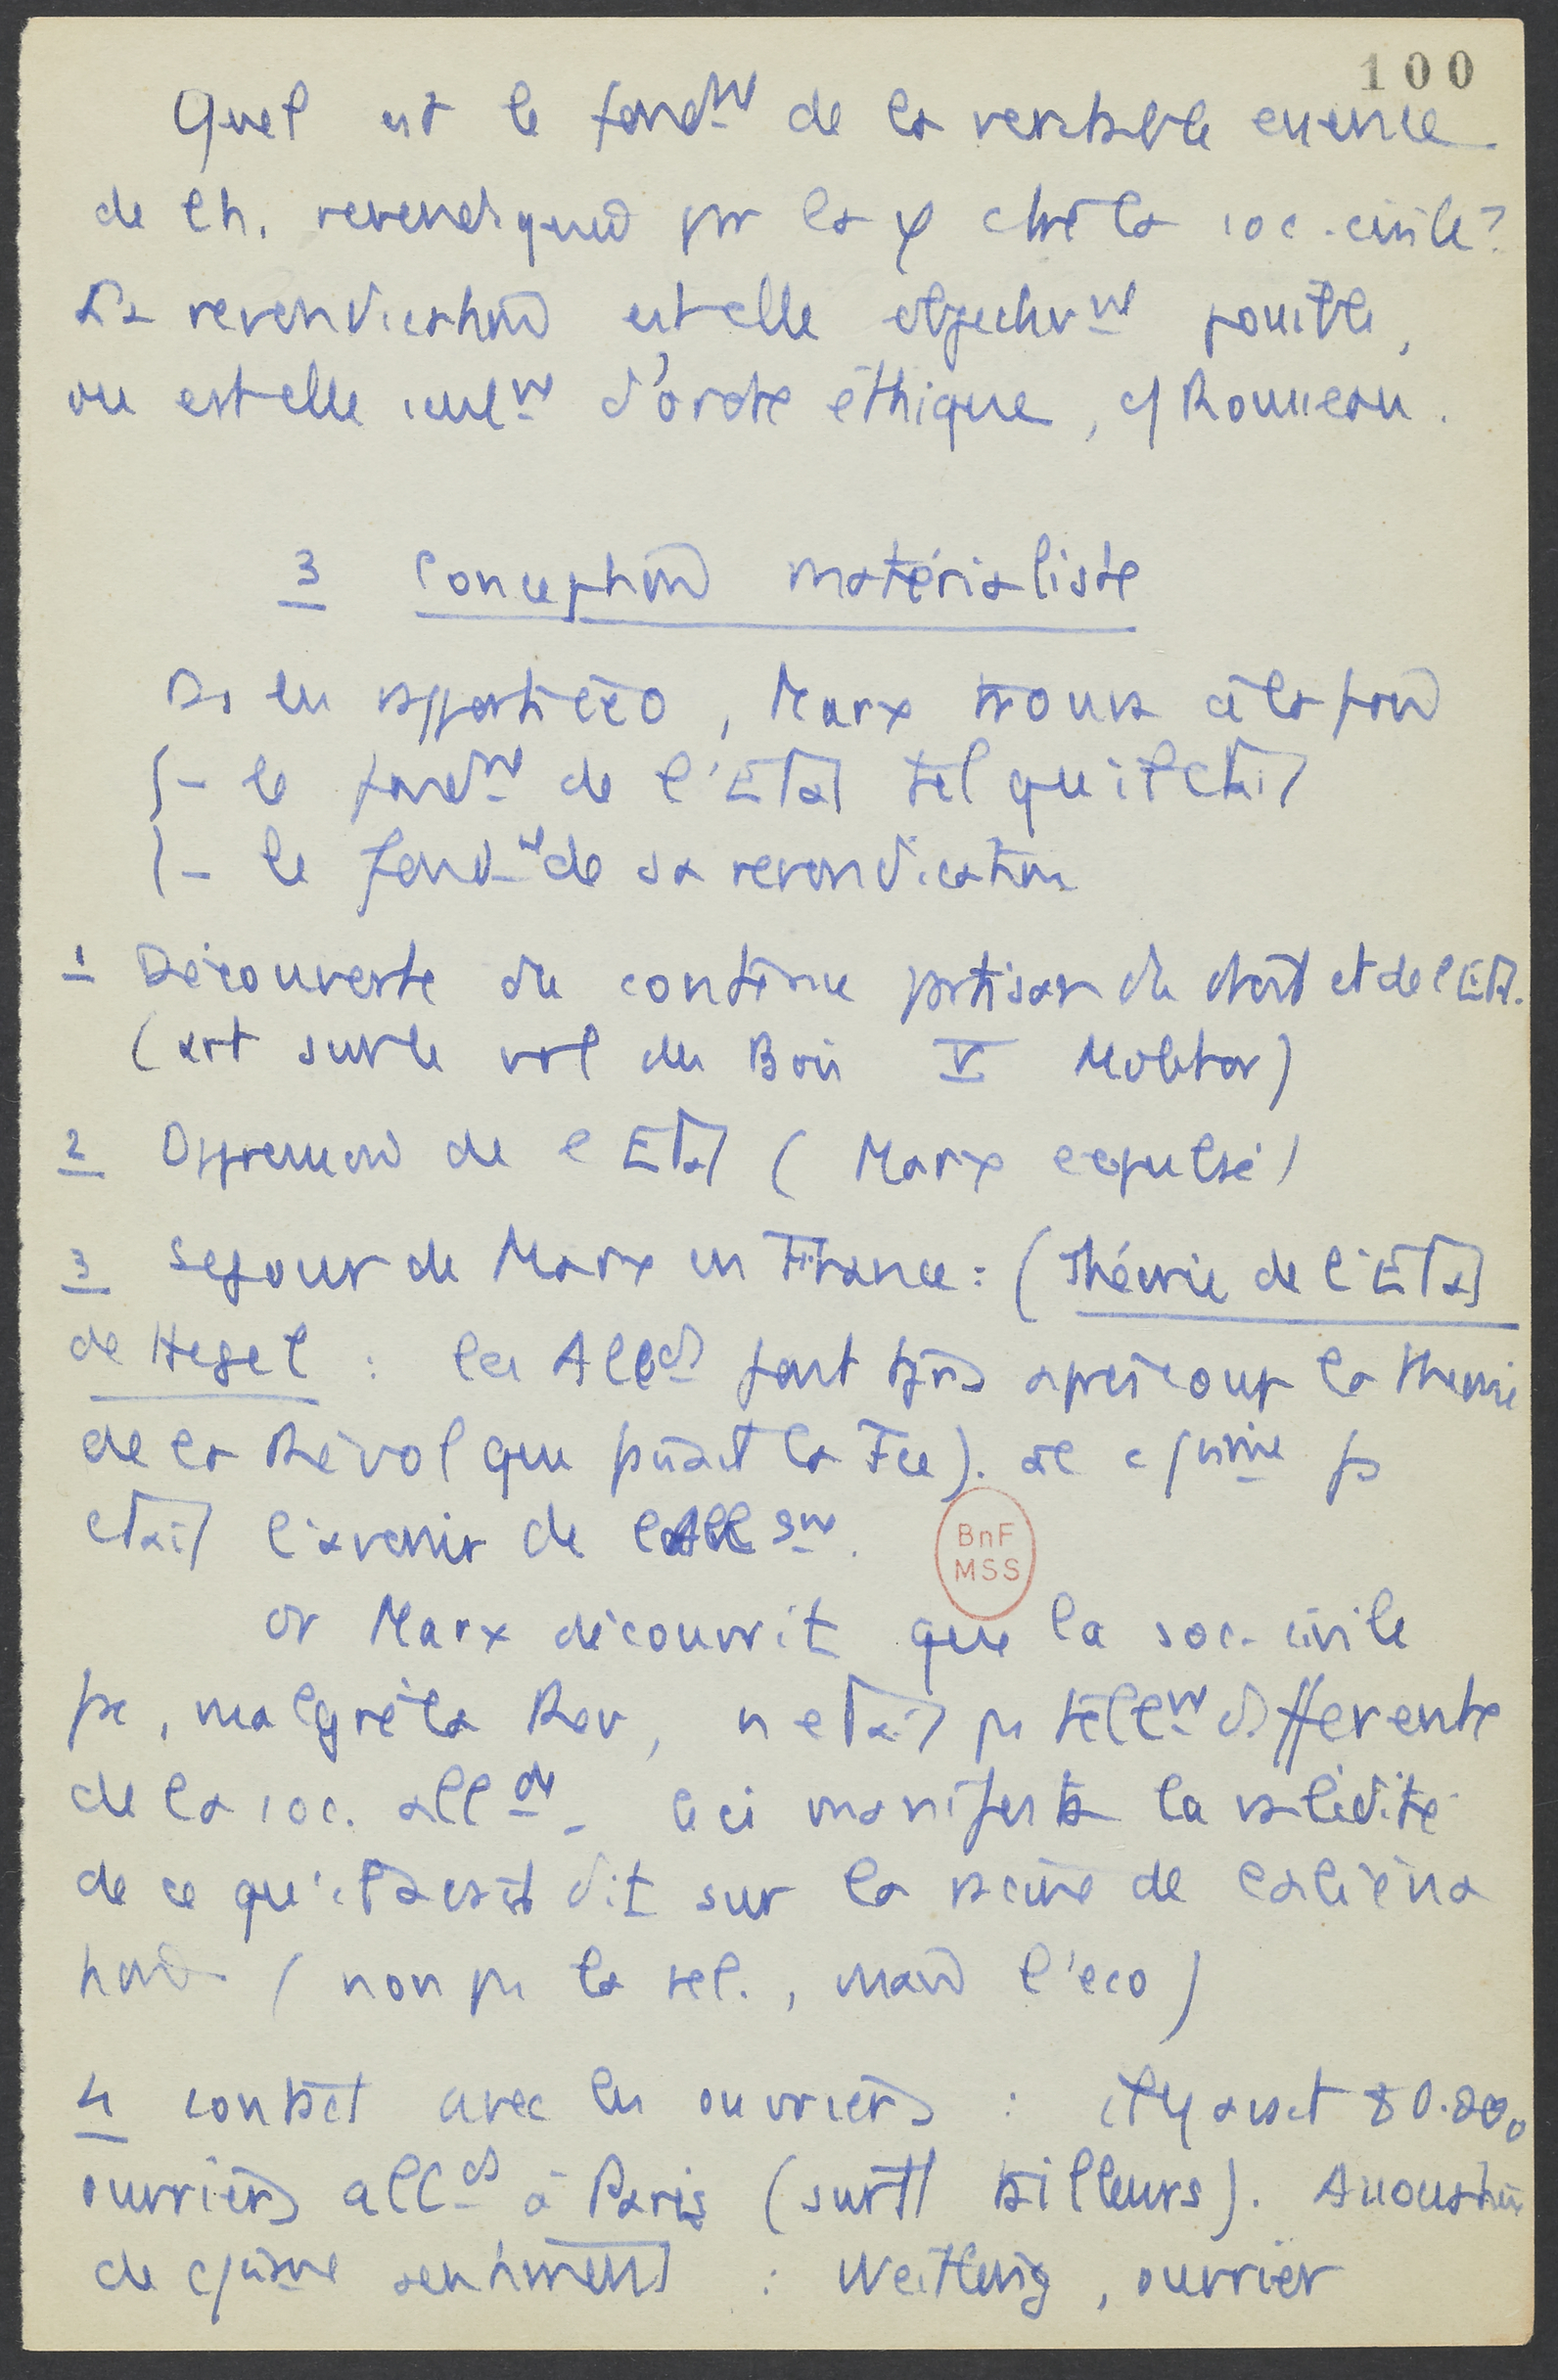 100
Quel est le fondmt de la véritable essence
de l'h. revendiquée par la φ chez la soc. civile ?
Sa revendication est elle objectivmt possible,
ou est-elle seulmt d'ordre éthique, cf Rousseau.
3 Conception matérialiste
Ds les rapports éco, Marx trouva à la fois
- le fondmt de l'Etat tel qu'il était
- le fondmt de sa revendication
1 Découverte du contenu partisan du droit et de l'Etat.
(art sur le vol du Bois V Molitor)
2 Oppression de l'Etat (Marx expulsé)
3 Séjour de Marx en France : (Théorie de l'Etat
de Hegel : les Allds font tjrs après coup la théorie
de la Révol que faisait la Fce). le cpisme fs
était l'avenir de l'Allgne.
or Marx découvrit que la soc. civile
fse, malgré la Rév, n'était pas tellmt différente
de la soc. allde. Ceci manifesta la validité
de ce qu'il avait dit sur la racine de l'aliéna
tion (non pas la rel., mais l'éco)
4 contact avec les ouvriers : il y avait 80.000
ouvriers allds à Paris (surtt tailleurs). Association
de cpisme sentimental : Weitling, ouvrier
BnF
MSS